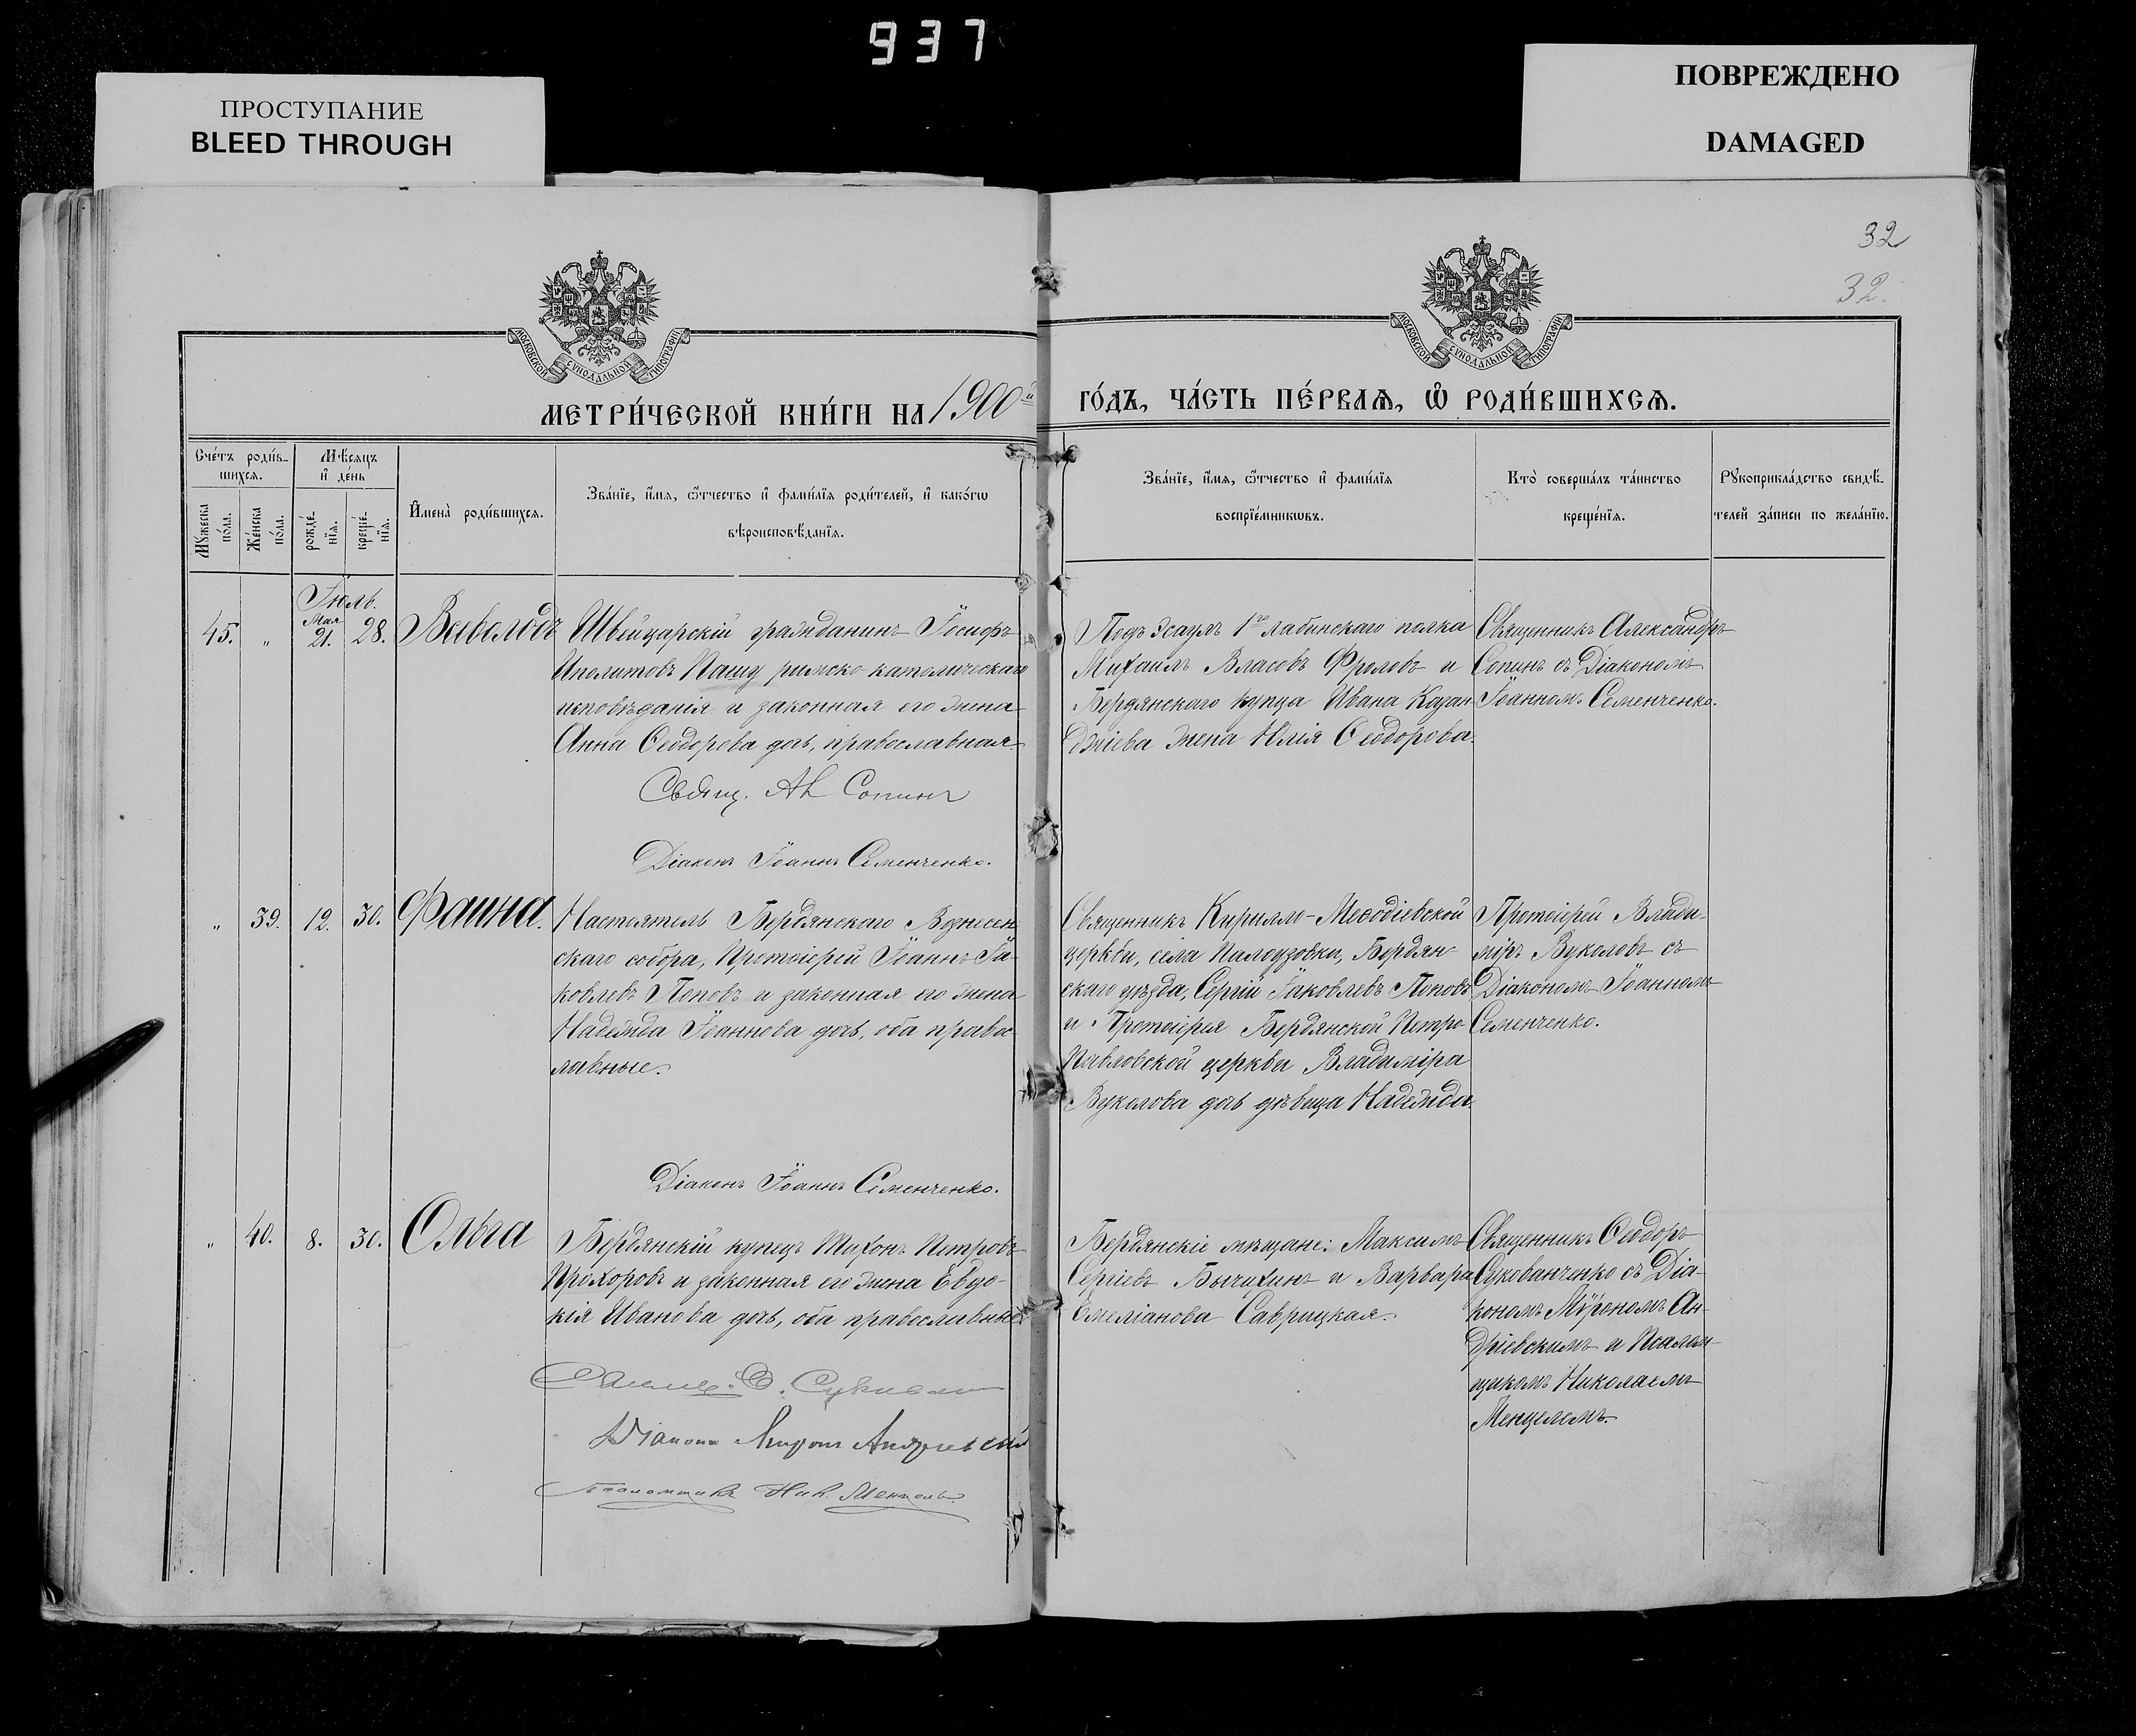 937
ПРОСТУПАНИЕ
BLEED THROUGH
ПОВРЕЖДЕНО
DAMAGED
32
32.
МОСКОВСКОЙ СѴНОДАЛЬНОЙ ТИПОГРАФІИ
МОСКОВСКОЙ СѴНОДАЛЬНОЙ ТИПОГРАФІИ
МЕТРИ́ЧЕСКОЙ КНИ́ГИ НА 1900й
ГО́ДЪ, ЧА́СТЬ ПЕ́РВАѦ, Ѡ҆ РОДИ́ВШИХСѦ.
Сче́тъ роди́в-
шихсѧ.
Мꙋ́жеска по́ла.
Же́нска по́ла.
Мѣ́сяцъ
и҆ де́нь
рожде́-нїѧ.
креще́-нїѧ.
И҆мена̀ роди́вшихсѧ.
Зва́нїе, и҆́мѧ, ѻ҆́тчество и҆ фами́лїѧ роди́телей, и҆ како́гѡ
вѣроисповѣ́данїѧ.
Зва́нїе, и҆́мѧ, ѻ҆́тчество и҆ фами́лїѧ
воспрїе́мникѡвъ.
Кто̀ соверша́лъ та́инство
креще́нїѧ.
Рꙋкоприкла́дство свидѣ́-
телей за́писи по жела́нїю.
Іюль.
45. „ Мая 21. 28. Всеволодъ
Швейцарскій гражданинъ Іосифъ
Иполитовъ Пашу римско-католическаго
исповѣданія и законная его жена
Анна Ѳеодорова дочь, православная.
Свящ. Ал Сопинъ
Діаконъ Іоаннъ Семенченко.
Подъэсаулъ 1го лабинскаго полка
Михаилъ Власовъ Фроловъ и
Бердянскаго купца Ивана Казан-
джіева жена Юлія Ѳеодорова.
Священникъ Александръ
Сопинъ съ Діакономъ
Іоанномъ Семенченко.
„ 39. 12. 30. Фаина.
Настоятель Бердянскаго Вознесен
скаго собора, Протоіерей Іоаннъ Іа-
ковлевъ Поповъ и законная его жена
Надежда Іоаннова дочь, оба правос-
лавные.
Діаконъ Іоаннъ Семенченко.
Священникъ Кирилло-Меѳодіевской
церкви, села Палоузовки, Бердян-
скаго уѣзда, Сергій Іаковлевъ Поповъ
и Протоіерея Бердянской Петро-
Павловской церкви Владиміра
Вуколова дочь дѣвица Надежда.
Протоіерей Влади-
міръ Вуколовъ съ
Діакономъ Іоанномъ
Семенченко.
„ 40. 8. 30. Ольга
Бердянскій купецъ Тихонъ Петровъ
Прохоровъ и законная его жена Евдо-
кія Иванова дочь, оба православные
Діаконъ Миронъ Андріевскій
Псаломщикъ Ник. Менцель.
Бердянскіе мѣщане: Максимъ
Сергіевъ Бычихинъ и Варвара
Емеліанова Саврицкая.
Священникъ Ѳеодоръ
Сукованченко съ Діа-
кономъ Мѵрономъ Ан-
дріевскимъ и Псалом-
щикомъ Николаемъ
Менцелемъ.